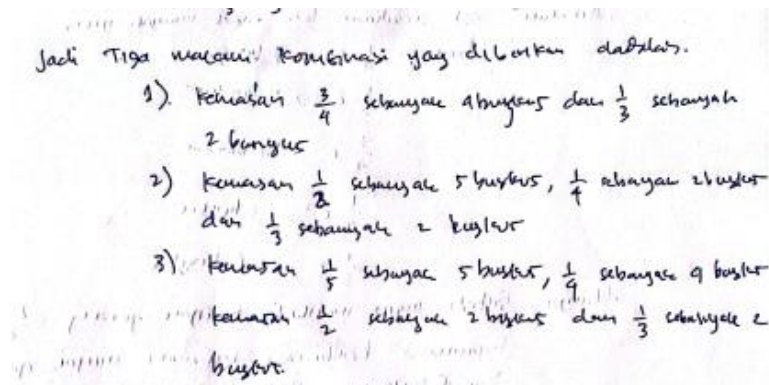 Jadi Tiga macam kombinasi yang diberikan adalah.
1). Kemasan 3/4 sebanyak 4 bungkus dan 1/3 sebanyak
2 bungkus
2) Kemasan 1/2 sebanyak 5 bungkus, 1/4 sebanyak 2 bungkus
dan 1/3 sebanyak 2 bungkus
3) Kemasan 1/5 sebanyak 5 bungkus, 1/4 sebanyak 4 bungkus
kemasan 1/2 sebanyak 2 bungkus dan 1/3 sebanyak 2
bungkus.